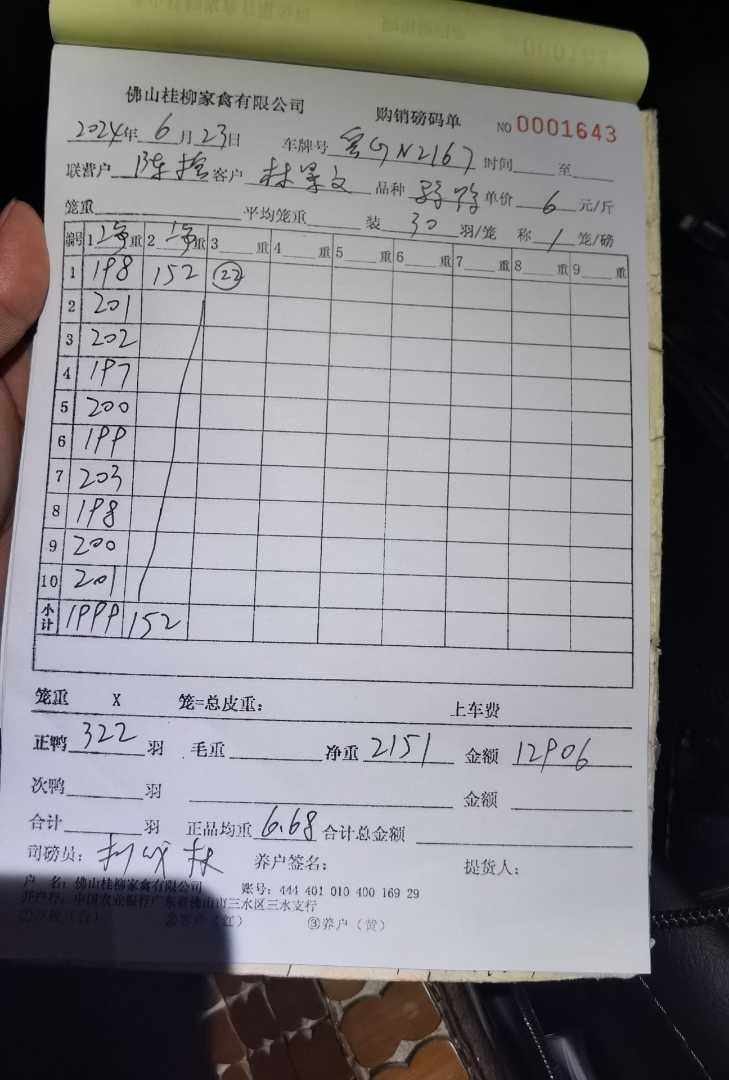 佛山桂柳家禽有限公司 购销磅码单 NO 0001643
2024年 6月 23日 车牌号 粤GN2167 时间 至
联营户 陈 客户 林 文 品种 单价 6 元/斤
笼重 平均笼重 装 30 羽/笼 称 1 笼/磅
编号 1 重 2 重 3 重 4 重 5 重 6 重 7 重 8 重 9 重
1 198 152 22
2 201
3 202
4 197
5 200
6 199
7 203
8 198
9 200
10 201
小计 1999 152
笼重 X 笼=总皮重: 上车费
正鸭 322 羽 毛重 净重 2151 金额 12906
次鸭 羽 金额
合计 羽 正品均重 6.68 合计总金额
司磅员: 养户签名: 提货人:
户 名: 佛山桂柳家禽有限公司 账号: 444 401 010 400 169 29
开户行: 中国农业银行广东省佛山市三水区三水支行
②客户(红) ③养户(黄)